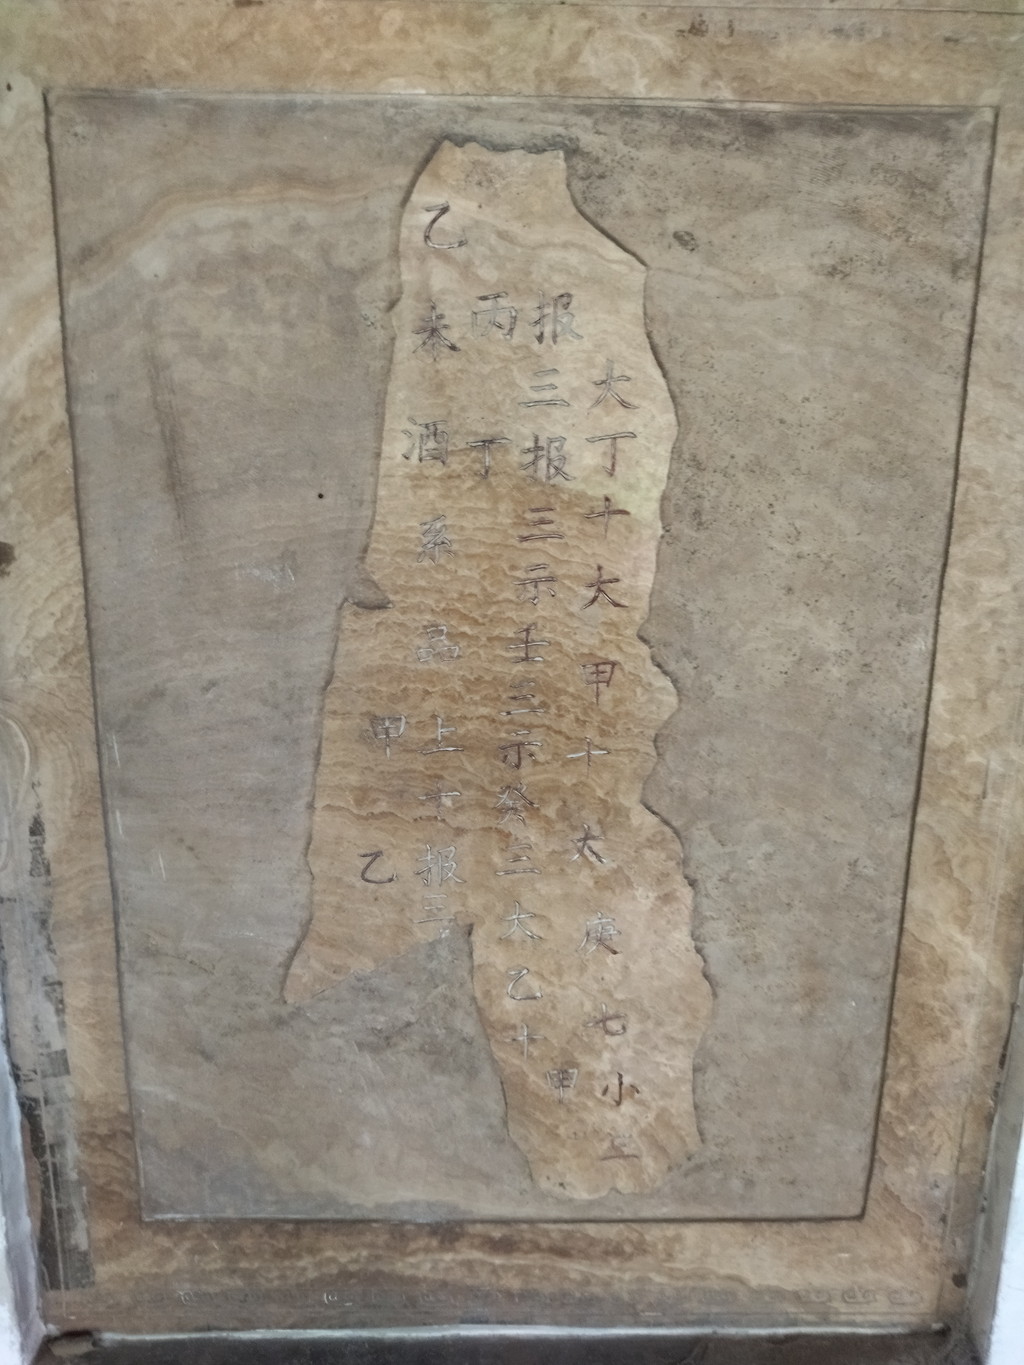 乙未酒系品上甲十报乙三
报丙三报丁三示壬三示癸三大乙十
大丁十大甲十太庚七小甲三